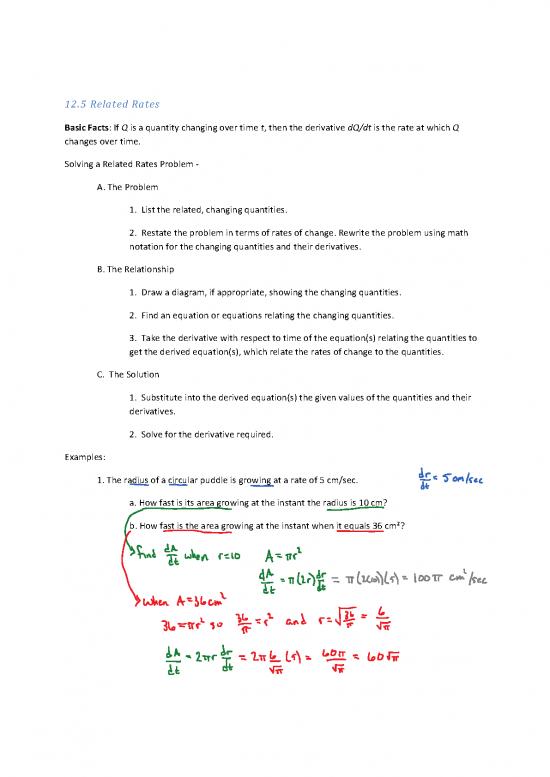 12.5 Related Rates
Basic Facts: If Q is a quantity changing over time t, then the derivative dQ/dt is the rate at which Q
changes over time.
Solving a Related Rates Problem -
A. The Problem
1. List the related, changing quantities.
2. Restate the problem in terms of rates of change. Rewrite the problem using math
notation for the changing quantities and their derivatives.
B. The Relationship
1. Draw a diagram, if appropriate, showing the changing quantities.
2. Find an equation or equations relating the changing quantities.
3. Take the derivative with respect to time of the equation(s) relating the quantities to
get the derived equation(s), which relate the rates of change to the quantities.
C. The Solution
1. Substitute into the derived equation(s) the given values of the quantities and their
derivatives.
2. Solve for the derivative required.
Examples:
1. The radius of a circular puddle is growing at a rate of 5 cm/sec. dr/dt = 5 cm/sec
a. How fast is its area growing at the instant the radius is 10 cm?
b. How fast is the area growing at the instant when it equals 36 cm²?
find dA/dt when r=10 A=πr²
dA/dt = π(2r)dr/dt = π(2(10))(5) = 100π cm²/sec
when A=36cm²
36=πr² so 36/π = r² and r=√(36/π) = 6/√π
dA/dt = 2πr dr/dt = 2π 6/√π (5) = 60π/√π = 60√π